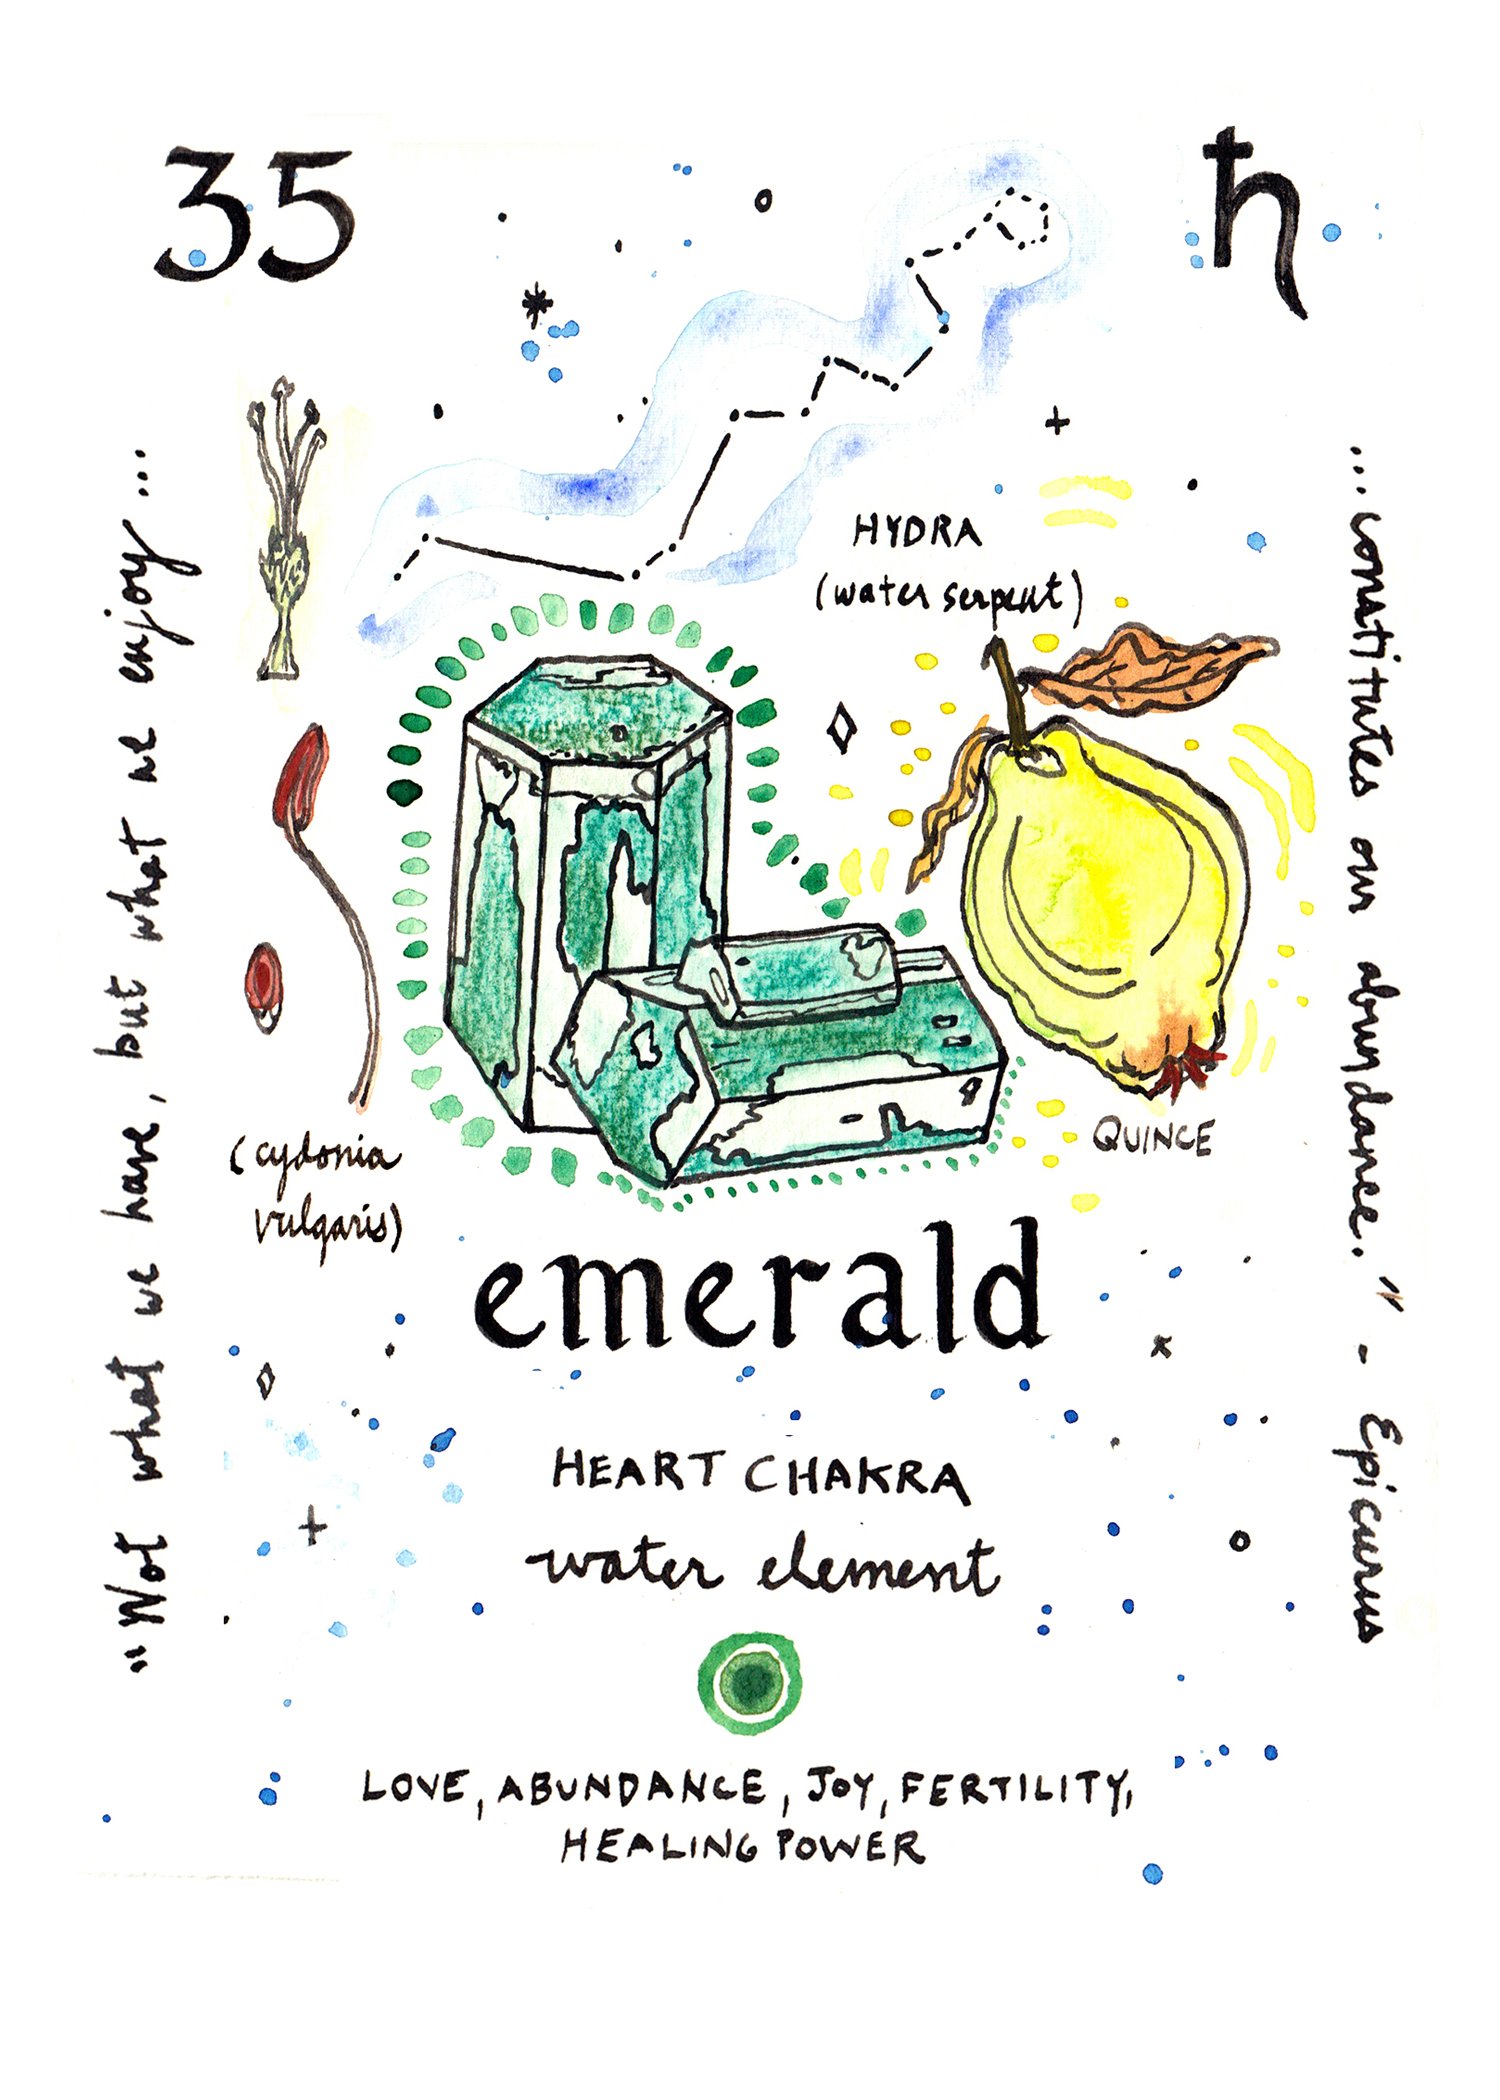 35
♄
"Not what we have, but what we enjoy...
HYDRA
(water serpent)
QUINCE
(cydonia
vulgaris)
emerald
HEART CHAKRA
water element
LOVE, ABUNDANCE, JOY, FERTILITY,
HEALING POWER
...constitutes our abundance." - Epicurus